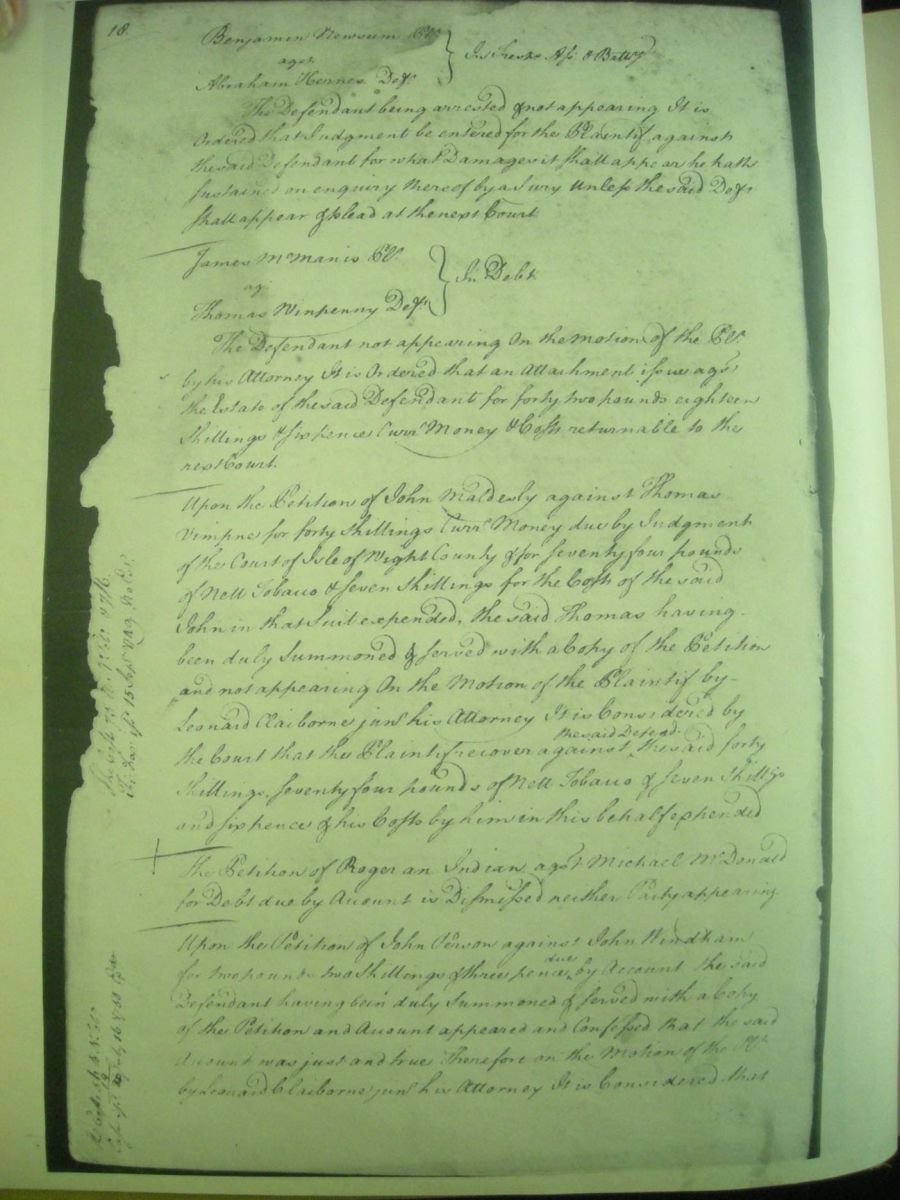 18
Benjamin Newsum Plt
agst
Abraham Hennes Deft
In Tresps Ass & Battry
The Defendant being arrested & not appearing It is
Ordered that Judgment be entered for the Plaintif against
the said Defendant for what Damages it shall appear he hath
sustained on enquiry thereof by a Jury unless the said Deft
shall appear & plead at the next Court
James McManis Plt
agt
Thomas Winpenny Deft
In Debt
The Defendant not appearing On the motion of the Plt
by his Attorney It is Ordered that an Attachment issue agst
the Estate of the said Defendant for forty two pounds eighteen
Shillings & sixpence Currt Money & Costs returnable to the
next Court.
Upon the Petition of John against Thomas
for forty Shillings Currt Money due by Judgment
of the Court of Isle of Wight County & for seventy four pounds
of Nett Tobacco & seven Shillings for the Costs of the said
John in that Suit expended, the said Thomas having
been duly Summoned & served with a Copy of the Petition
and not appearing On the Motion of the Plaintif by
Leonard Claiborne junr his Attorney It is Considered by
the said Defend.
the Court that the Plaintif recover against the said forty
Shillings seventy four pounds of Nett Tobacco & seven Shillgs
and sixpence & his Costs by him in this behalf expended
The Petition of Roger an Indian agst Michael McDonald
for Debt due by Account is Dismissed neither Party appearing
Upon the Petition of John Person against John Windham
due
for two pounds two Shillings & three pence by Account the said
Defendant having been duly Summoned & served with a Copy
of the Petition and Account appeared and Confessed that the said
Account was just and true Therefore on the Motion of the Plt
by Leonard Claiborne junr his Attorney It is Considered that